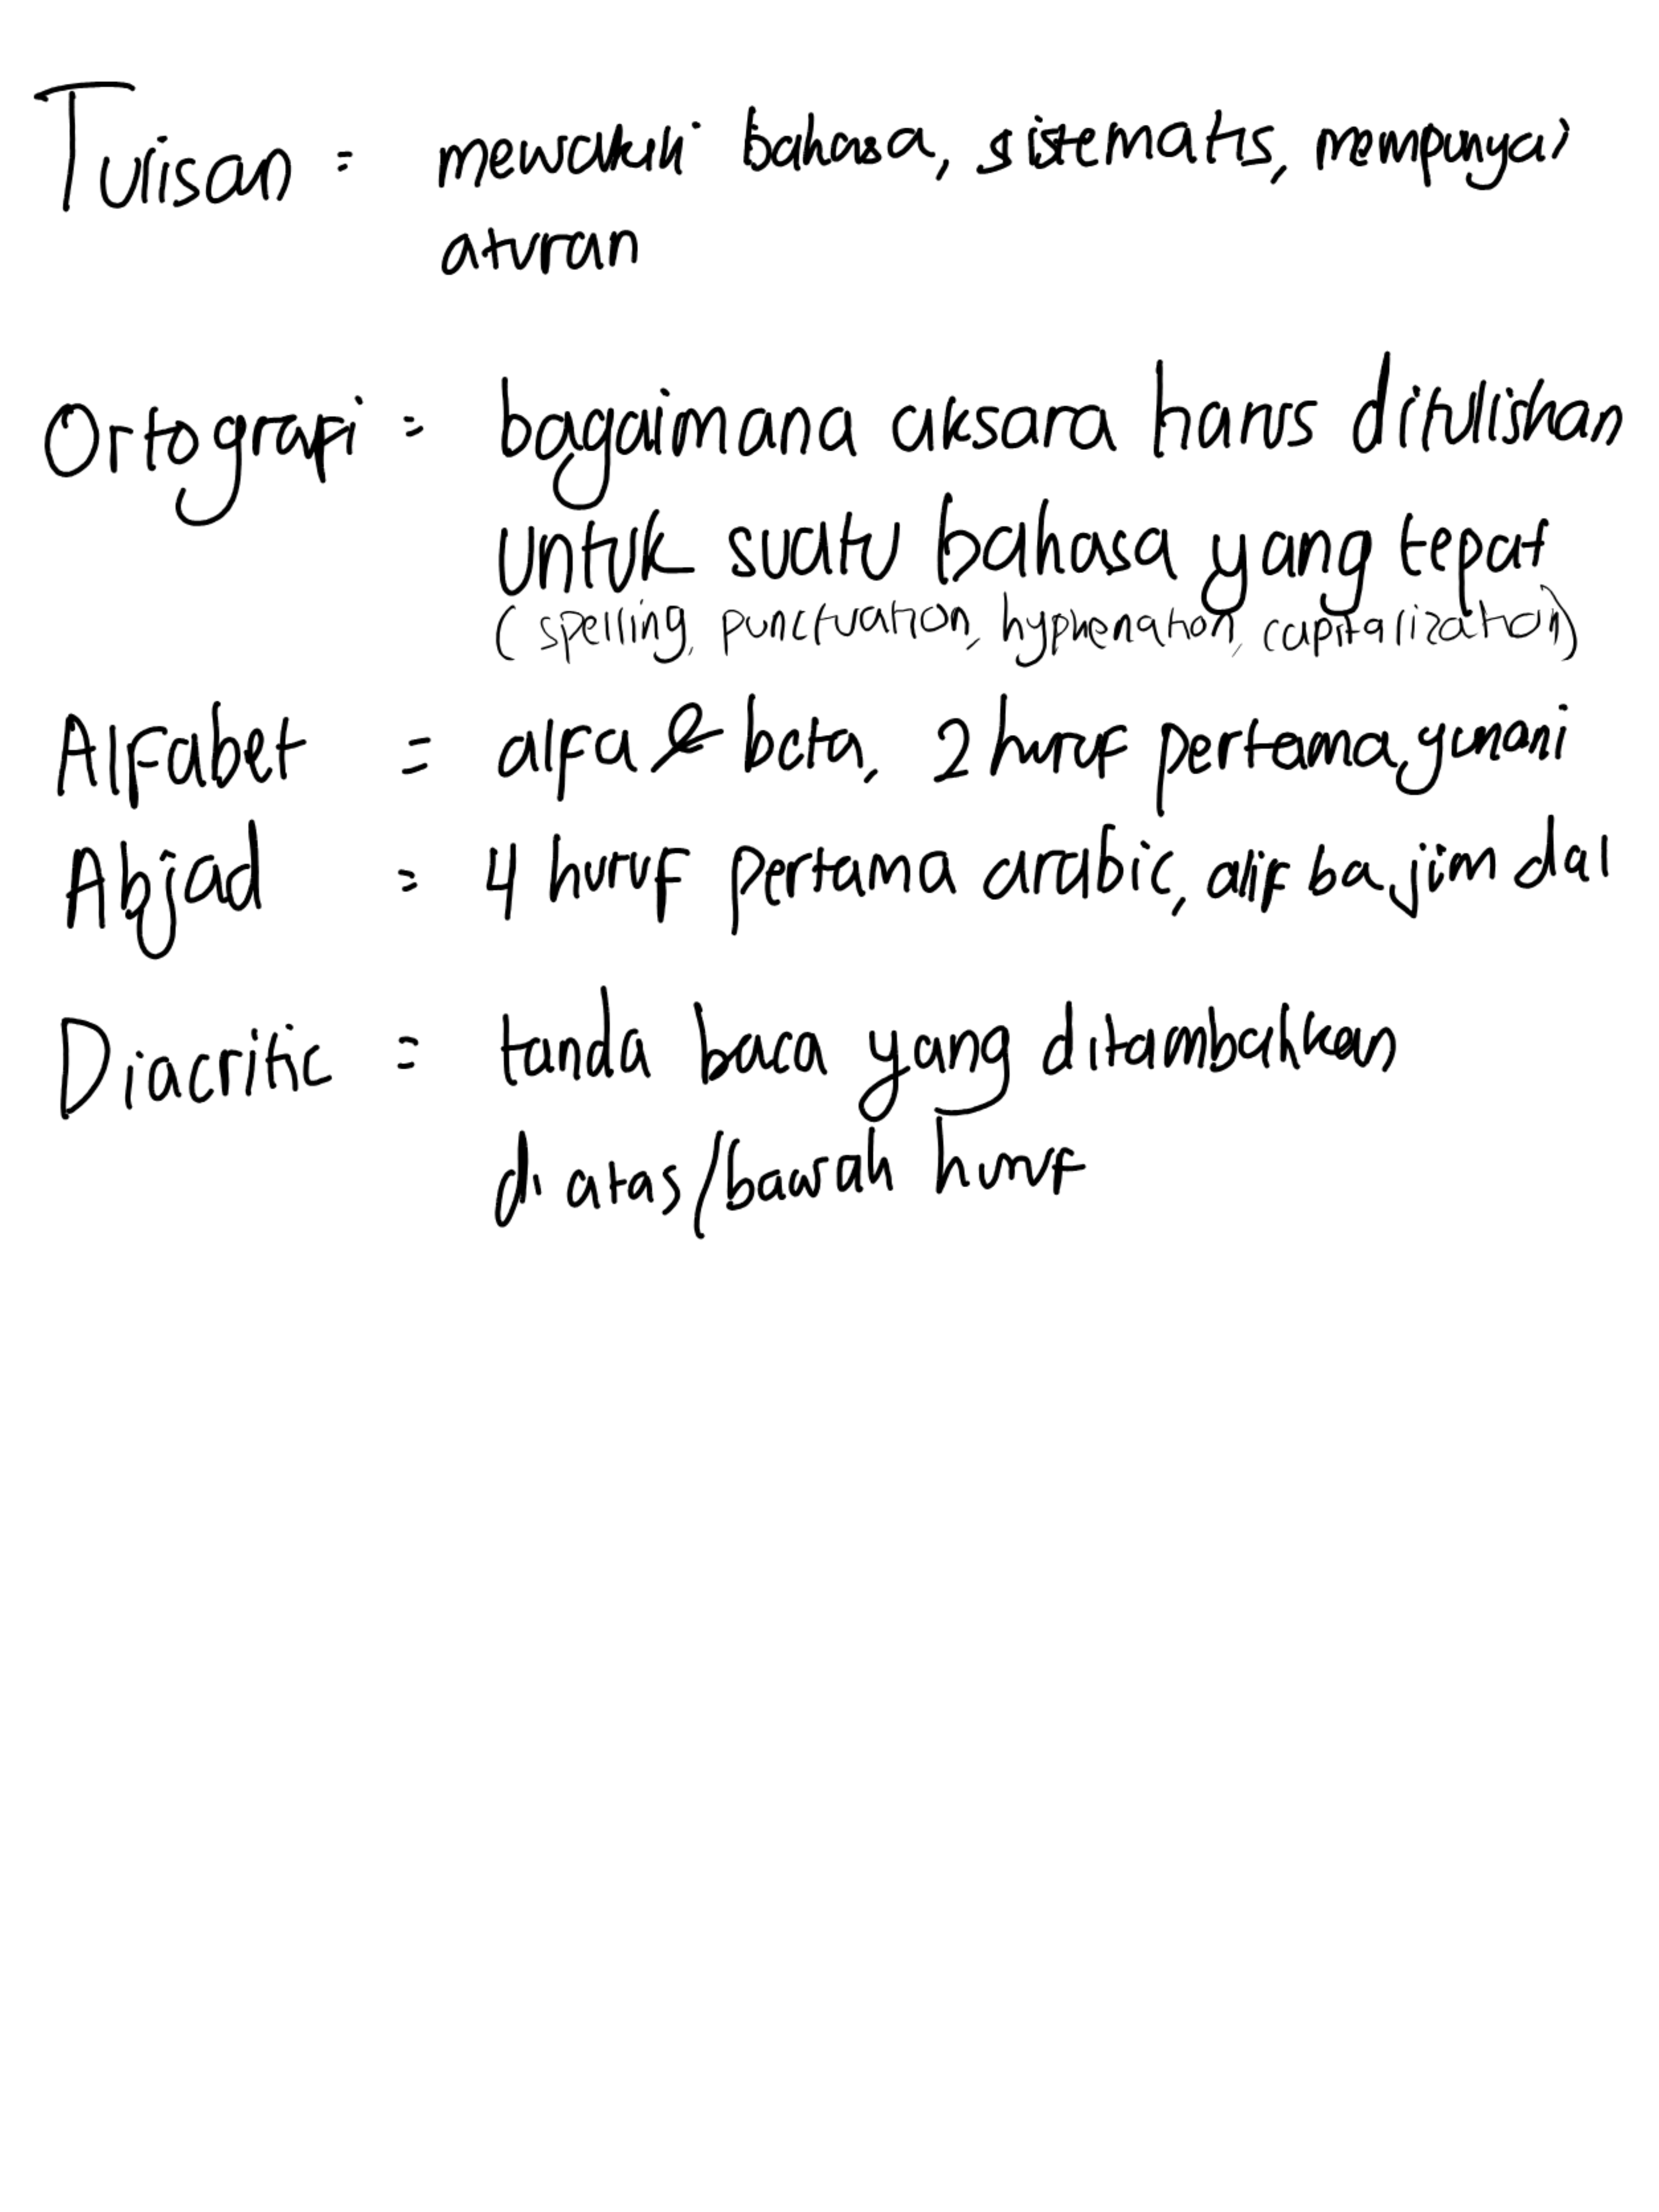 Tulisan = mewakili bahasa, sistematis, mempunyai
aturan
Ortografi = bagaimana aksara harus dituliskan
untuk suatu bahasa yang tepat
(spelling, punctuation, hyphenation, capitalization)
Alfabet = alfa & beta, 2 huruf pertama yunani
Abjad = 4 huruf pertama arabic, alif ba jim dal
Diacritic = tanda baca yang ditambahkan
di atas/bawah huruf